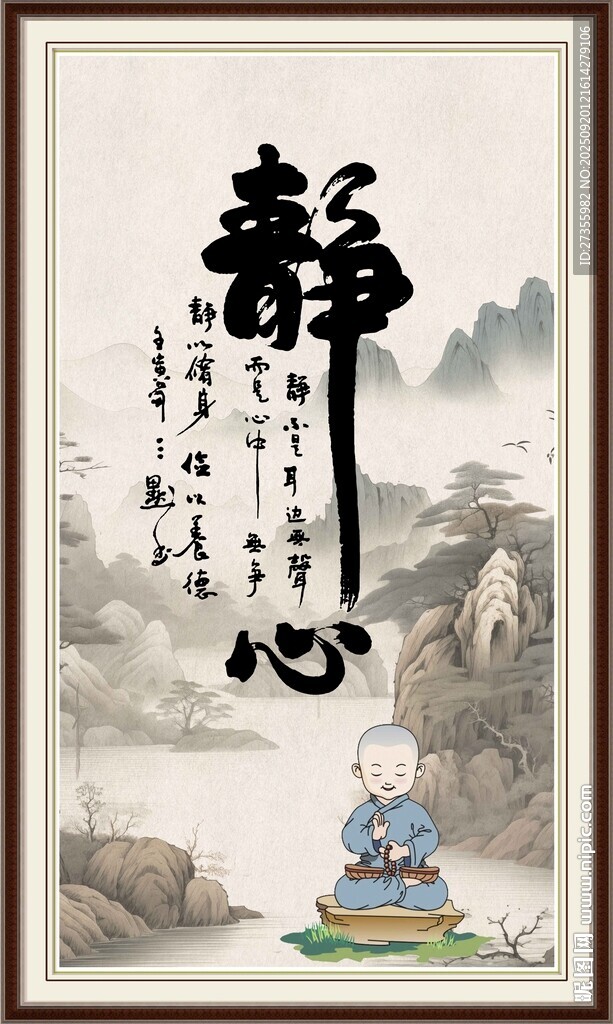 靜心
靜不是耳边無聲
而是心中無争
靜以脩身 俭以養德
壬寅年
ID:27355982 NO:20250920121614279106
昵图网 www.nipic.com